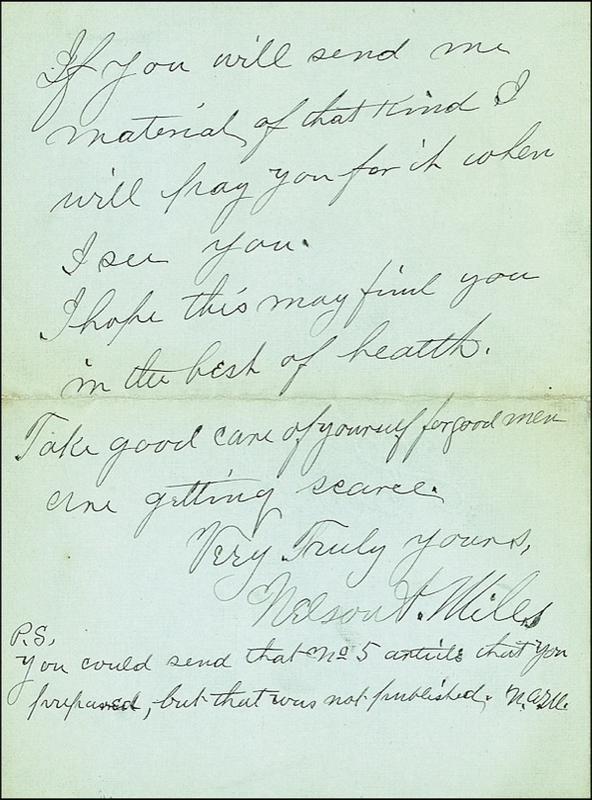 If you will send me
material, of that kind I
will pay you for it when
I see you.
I hope this may find you
in the best of health.
Take good care of yourself for good men
are getting scarce.
Very Truly yours,
Nelson A. Miles
P.S.
You could send that No 5 article that you
prepared, but that was not published. N.A.M.